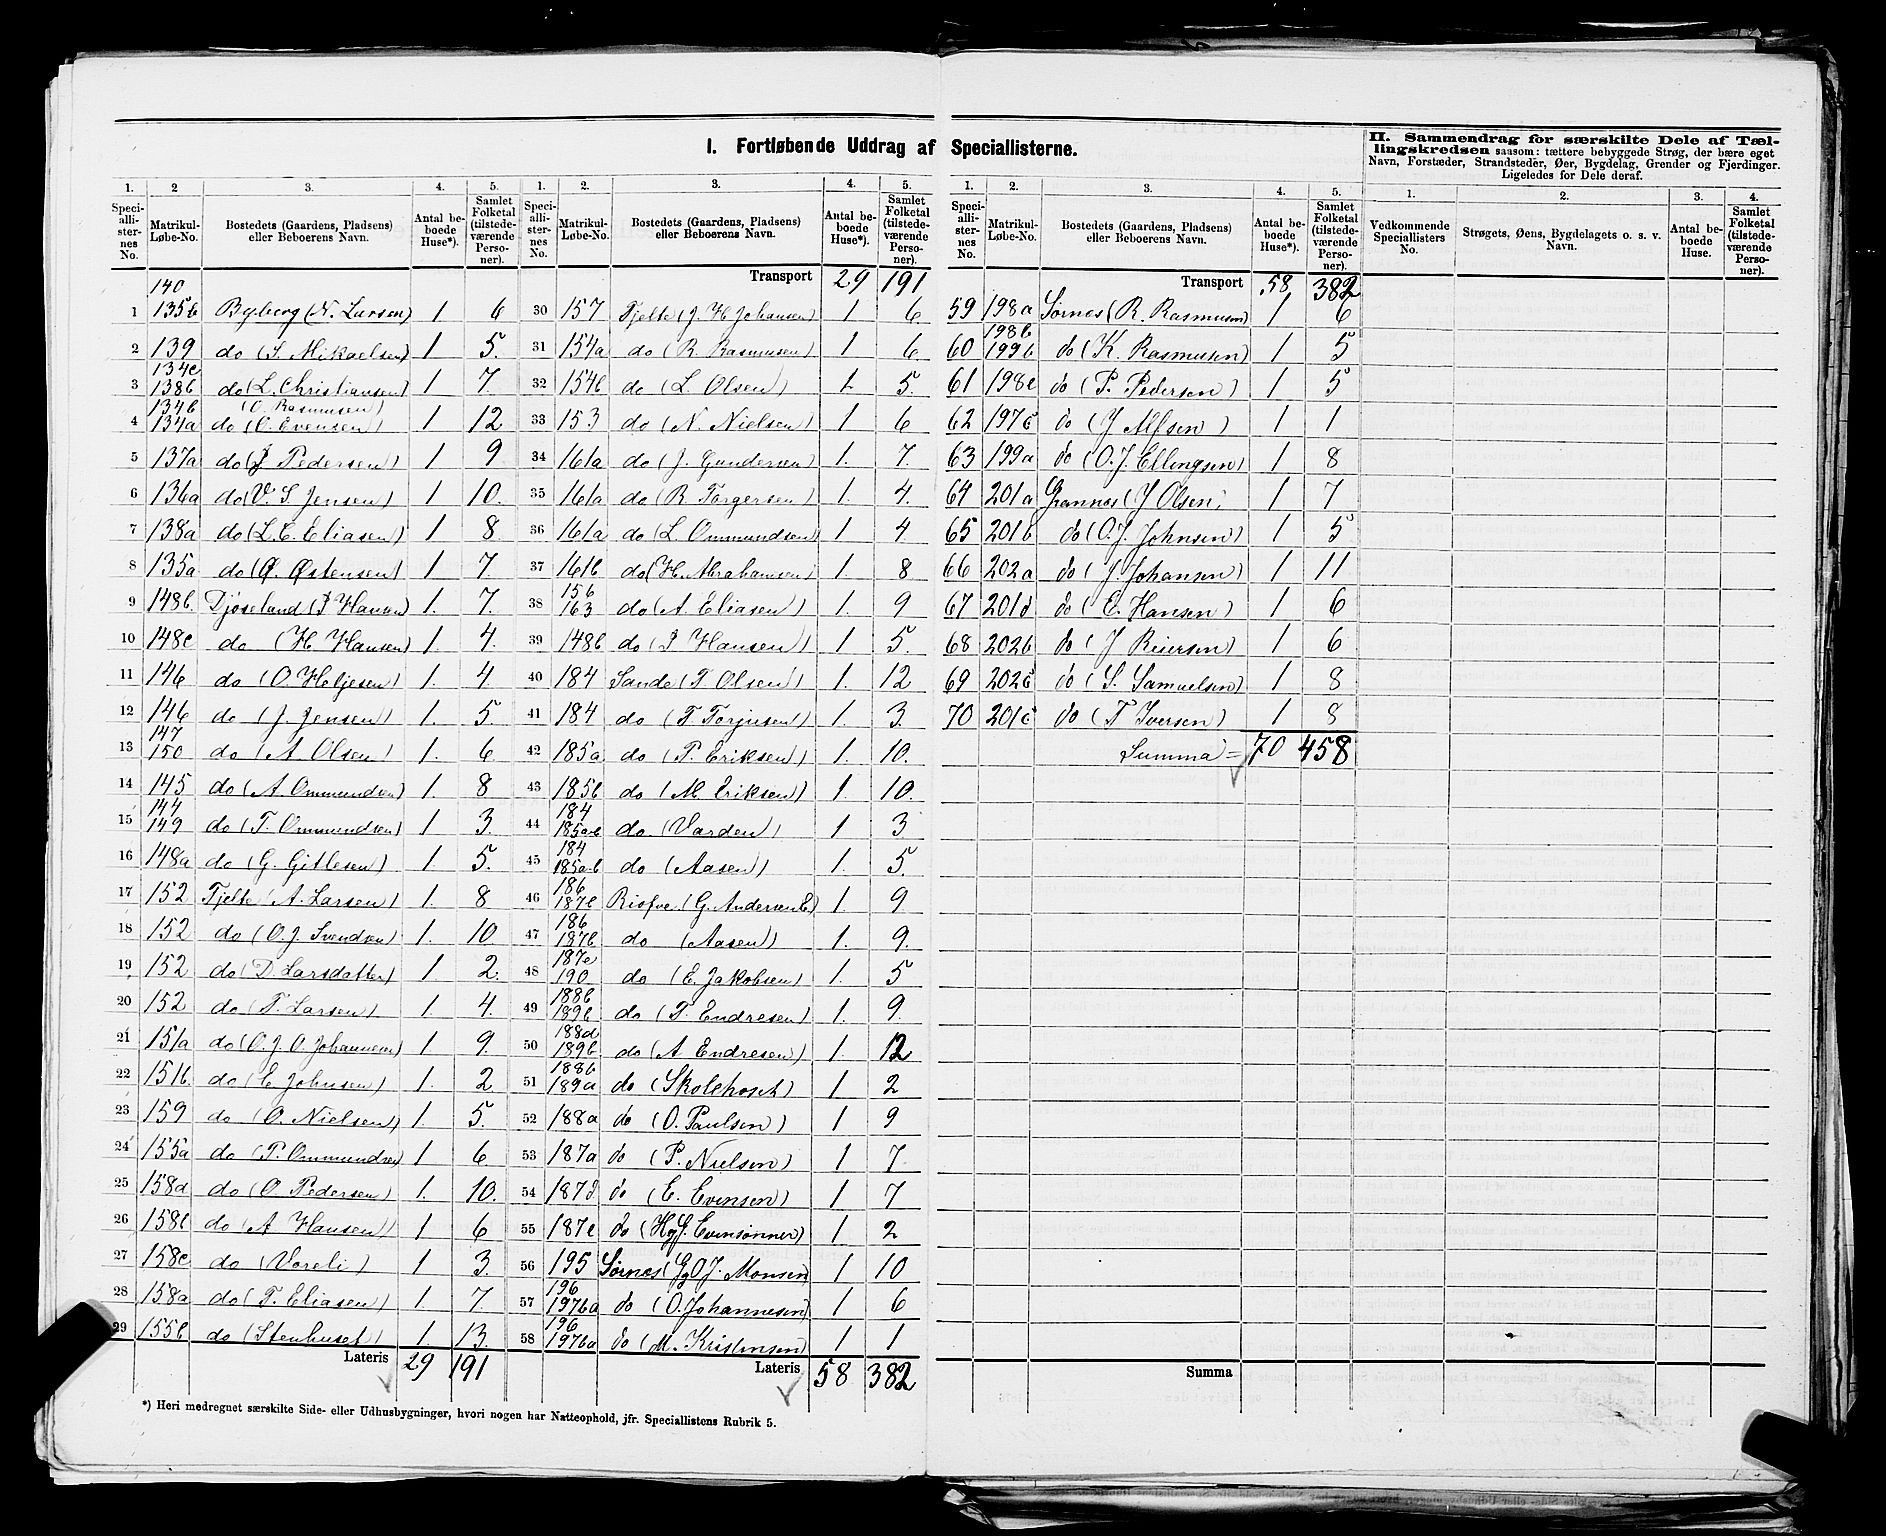 I. Fortløbende Uddrag af Speciallisterne.
II. Sammendrag for særskilte Dele af Tællingskredsen saasom: tættere bebyggede Strøg, der bære eget
Navn, Forstæder, Strandsteder, Øer, Bygdelag, Grender og Fjerdinger.
Ligeledes for Dele deraf.
1. 2 3. 4. 5.
Speciallisternes No. Matrikul-Løbe-No. Bostedets (Gaardens, Pladsens) eller Beboerens Navn. Antal beboede Huse*). Samlet Folketal (tilstedeværende Personer).
1 140 135b Byberg (N. Larsen) 1 6
2 139 do (S. Mikaelsen) 1 5.
3 134c 138b do (L. Christiansen) 1 7.
4 134b 134a do (O. Rasmusen) (O. Evensen) 1 12
5 137a do (J Pedersen) 1 9
6 136a do (V. S. Jensen) 1 10.
7 138a do (L. C. Eliasen) 1 8
8 135a do (O. Østensen) 1 7.
9 148b. Djøseland (P Hansen) 1. 7.
10 148c do (H Hansen) 1. 4.
11 146 do (O. Heljesen) 1. 4
12 146 do (J. Jensen) 1. 5.
13 147 150 do (A. Olsen) 1. 6
14 145 do (A. Ommundsen) 1. 8
15 144 149 do (T. Ommundsen) 1 3.
16 148a do (G. Gitlesen) 1. 5.
17 152 Tjelte (A. Larsen) 1. 8
18 152 do (O. J. Svendsen) 1. 10
19 152 do (D. Larsdatter) 1 2.
20 152 do (T. Larsen) 1 4.
21 151a do (O. J. O. Johannesen) 1 9.
22 151b do (E Johnsen) 1. 2
23 159 do (O. Nielsen) 1. 5.
24 155a do (P. Ommundsen) 1 6
25 158d do (O. Pedersen) 1. 10.
26 158b do (A Hansen) 1 6
27 158c do (Voreli) 1 3.
28 158a do (T. Eliasen) 1. 7.
29 155b do (Stenhuset) 1 13.
Lateris 29 191
1. 2. 3. 4. 5.
Speciallisternes No. Matrikul-Løbe-No. Bostedets (Gaardens, Pladsens) eller Beboerens Navn. Antal beboede Huse*). Samlet Folketal (tilstedeværende Personer).
Transport 29 191
30 157 Tjelte (J. H Johansen) 1 6.
31 154a do (R. Rasmusen) 1 6
32 154b do (L. Olsen) 1. 5.
33 153 do (N. Nielsen) 1 6
34 161a do (J. Gundersen) 1. 7.
35 161a do (R Torgersen) 1. 4.
36 161a do (L. Ommundsen) 1 4
37 161b do (H. Abrahamsen) 1. 8
38 156 163 do (A. Eliasen) 1. 9
39 148b do (P Hansen) 1 5.
40 184 Sande (T Olsen) 1. 12
41 184 do (T Torjusen) 1. 3.
42 185a do (P. Eriksen) 1. 10.
43 185b do (M. Eriksen) 1. 10.
44 184 185a-b do (Varden) 1 3
45 184 185a-b do (Aasen) 1. 5.
46 186 187b 1. 9
47 186 187b do (Aasen) 1. 9.
48 190 do (E. Jakobsen) 1. 5
49 188b 189b do (T. Endresen) 1. 9.
50 188d 189b do (A Endresen) 1. 12
51 188b 189a do 1 2
52 188a do (O. Paulsen) 1 9
53 187a do (P. Nielsen) 1 7
54 187d do (E. Evensen) 1 7
55 187c do 1 2
56 195 Sørnes (G. g O. J. Monsen 1 10
57 196 197ba do (O. Johannesen) 1 6
58 196 197ba do (M. Kristensen) 1 1
Lateris 58 382
1. 2. 3. 4. 5.
Speciallisternes No. Matrikul-Løbe-No. Bostedets (Gaardens, Pladsens) eller Beboerens Navn. Antal beboede Huse*). Samlet Folketal (tilstedeværende Personer).
Transport 58 382
59 198a Sørnes (R. Rasmusen) 1 6
60 198b 199b do (K. Rasmusen) 1 5
61 198c do (P. Pedersen) 1 5
62 197c do (J Alfsen) 1 1
63 199a do (O. J. Ellingsen) 1 8
64 201a Grannes (J Olsen) 1 7
65 201b do (O. J. Johnsen) 1 5
66 202a do (J. Johansen) 1 11
67 201d do (E. Hansen) 1 6
68 202b do (J Reiersen) 1 6
69 202c do (S. Samuelsen) 1 8
70 201c do (T Iversen) 1 8
Summa = 70 458
Summa
1. 2. 3. 4.
Vedkommende Speciallisters No. Strøgets, Øens, Bygdelagets o. s. v. Navn. Antal beboede Huse. Samlet Folketal (tilstedeværende Personer).
*) Heri medregnet særskilte Side- eller Udhusbygninger, hvori nogen har Natteophold, jfr. Speciallistens Rubrik 5.